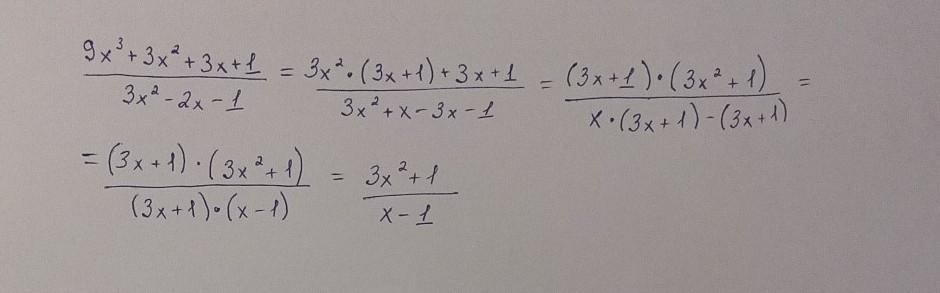 (9x³+3x²+3x+1)/(3x²-2x-1) = (3x²·(3x+1)+3x+1)/(3x²+x-3x-1) = ((3x+1)·(3x²+1))/(x·(3x+1)-(3x+1)) =
= ((3x+1)·(3x²+1))/((3x+1)·(x-1)) = (3x²+1)/(x-1)